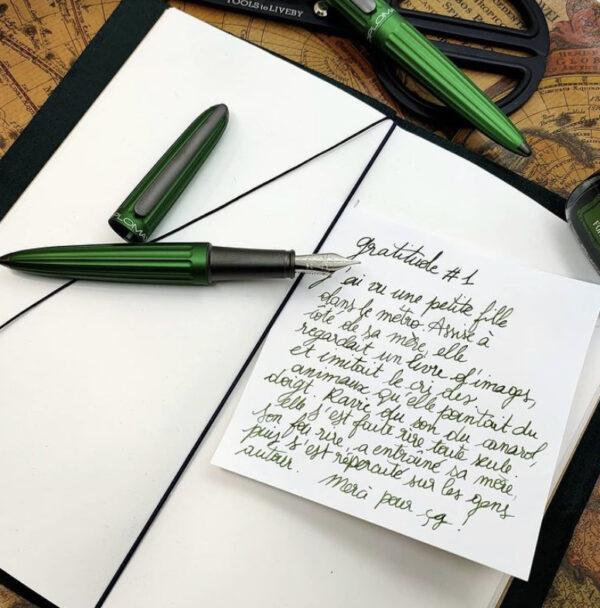 TOOLS to LIVEBY
DIPLOMA
gratitude #1
J'ai vu une petite fille
dans le métro. Assise à
côté de sa mère, elle
regardait un livre d'images,
et imitait le cri des
animaux qu'elle pointait du
doigt. Ravie du son du canard,
elle s'est faite rire toute seule.
Son fou rire, a entraîné sa mère,
puis s'est répercuté sur les gens
autour.
Merci pour ça !